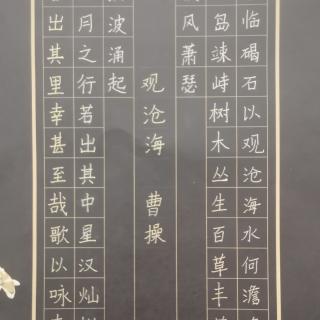 临碣石以观沧海水何澹
岛竦峙树木丛生百草丰
风萧瑟
观沧海 曹操
波涌起
月之行若出其中星汉灿
出其里幸甚至哉歌以咏